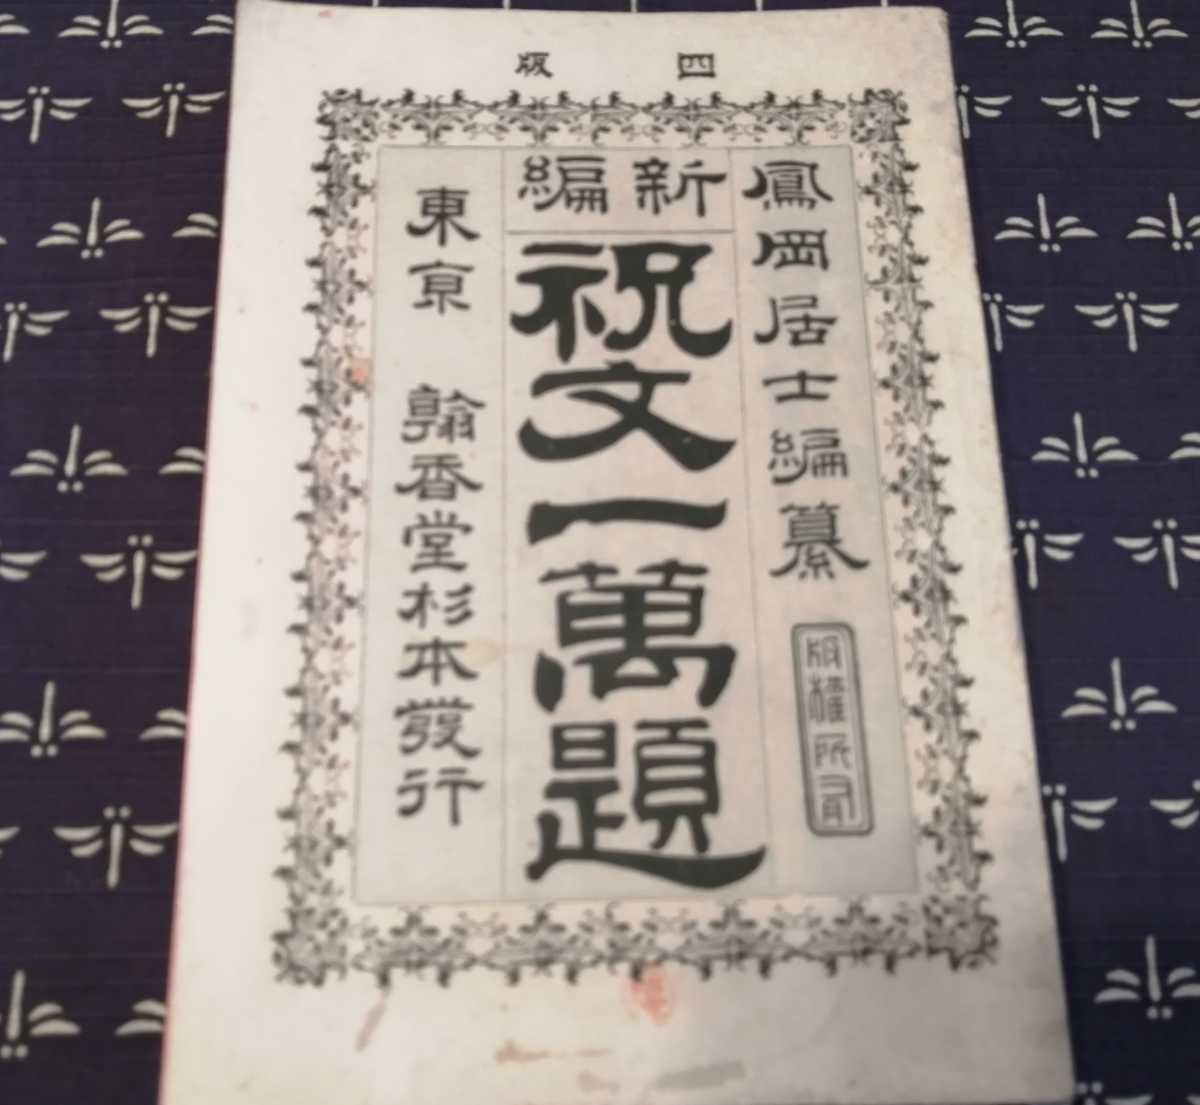 四版
鳳岡居士編纂
版權所有
新編
祝文一萬題
東京 翰香堂杉本發行